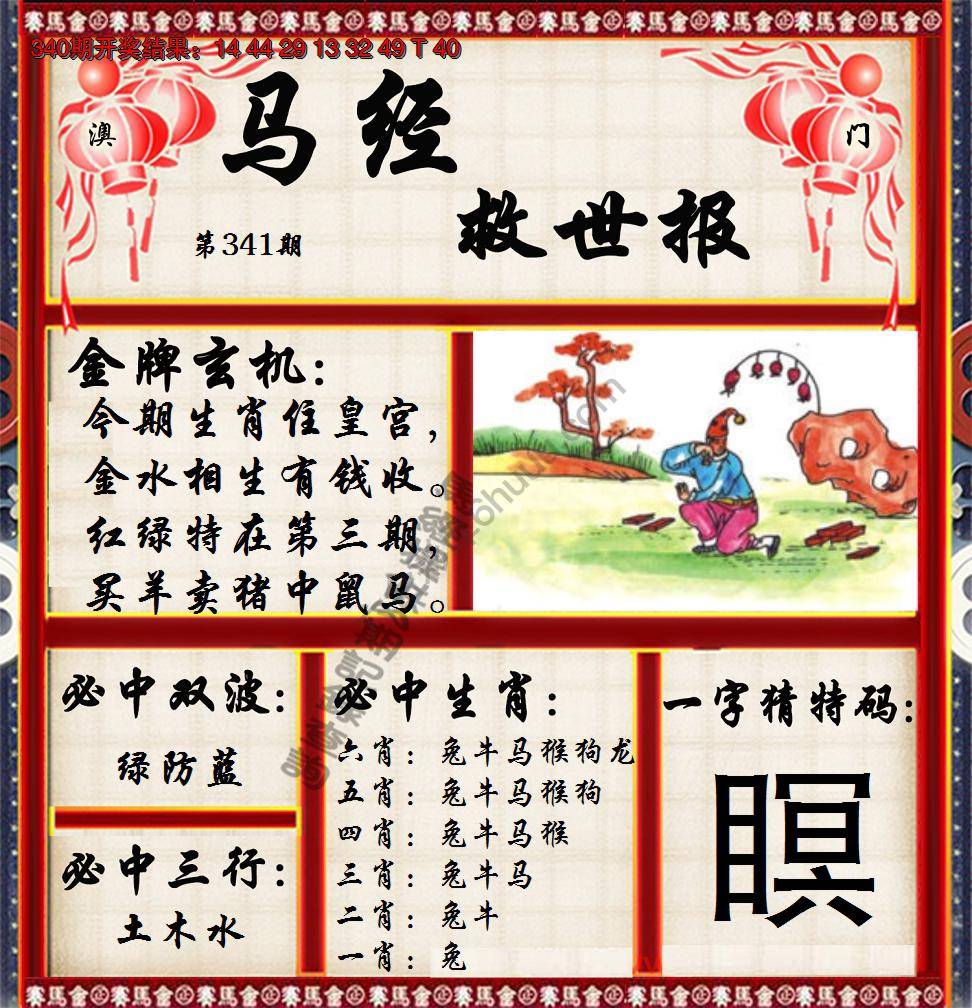 340期开奖结果：14 44 29 13 32 49 T 40
澳
门
马经
救世报
第341期
金牌玄机：
今期生肖住皇宫，
金水相生有钱收。
红绿特在第三期，
买羊卖猪中鼠马。
必中双波：
绿防蓝
必中三行：
土木水
必中生肖：
六肖：兔牛马猴狗龙
五肖：兔牛马猴狗
四肖：兔牛马猴
三肖：兔牛马
二肖：兔牛
一肖：兔
一字猜特码：
瞑